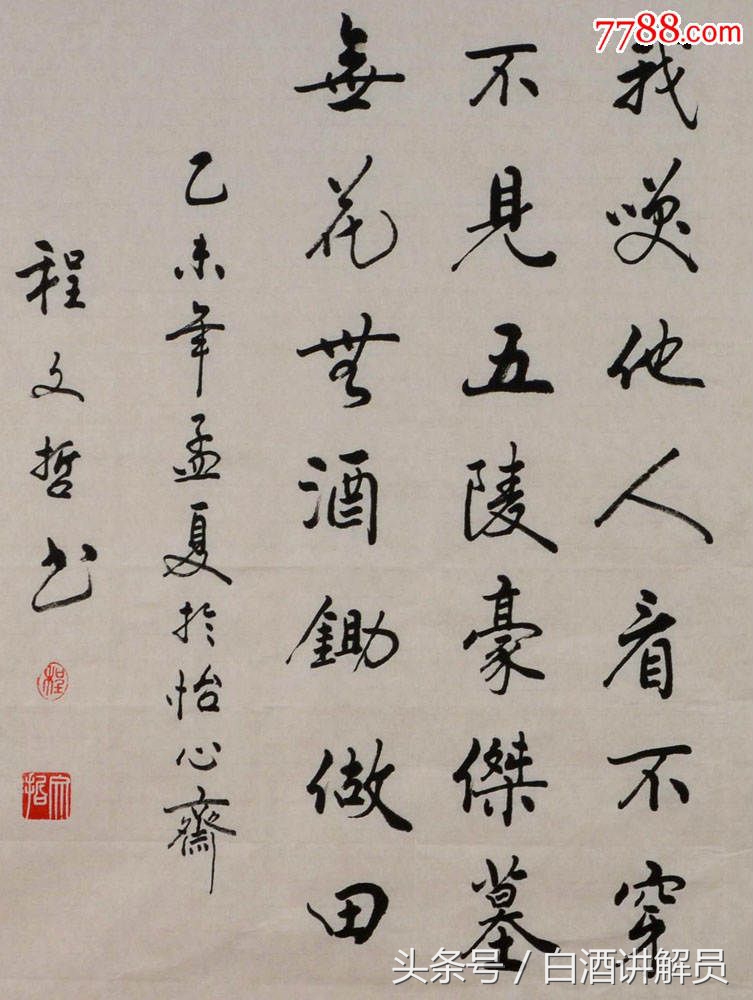 我咲他人看不穿
不見五陵豪傑墓
無花無酒鋤做田
乙未年孟夏於怡心齋
程文哲书
程
文哲
7788.com
头条号/白酒讲解员